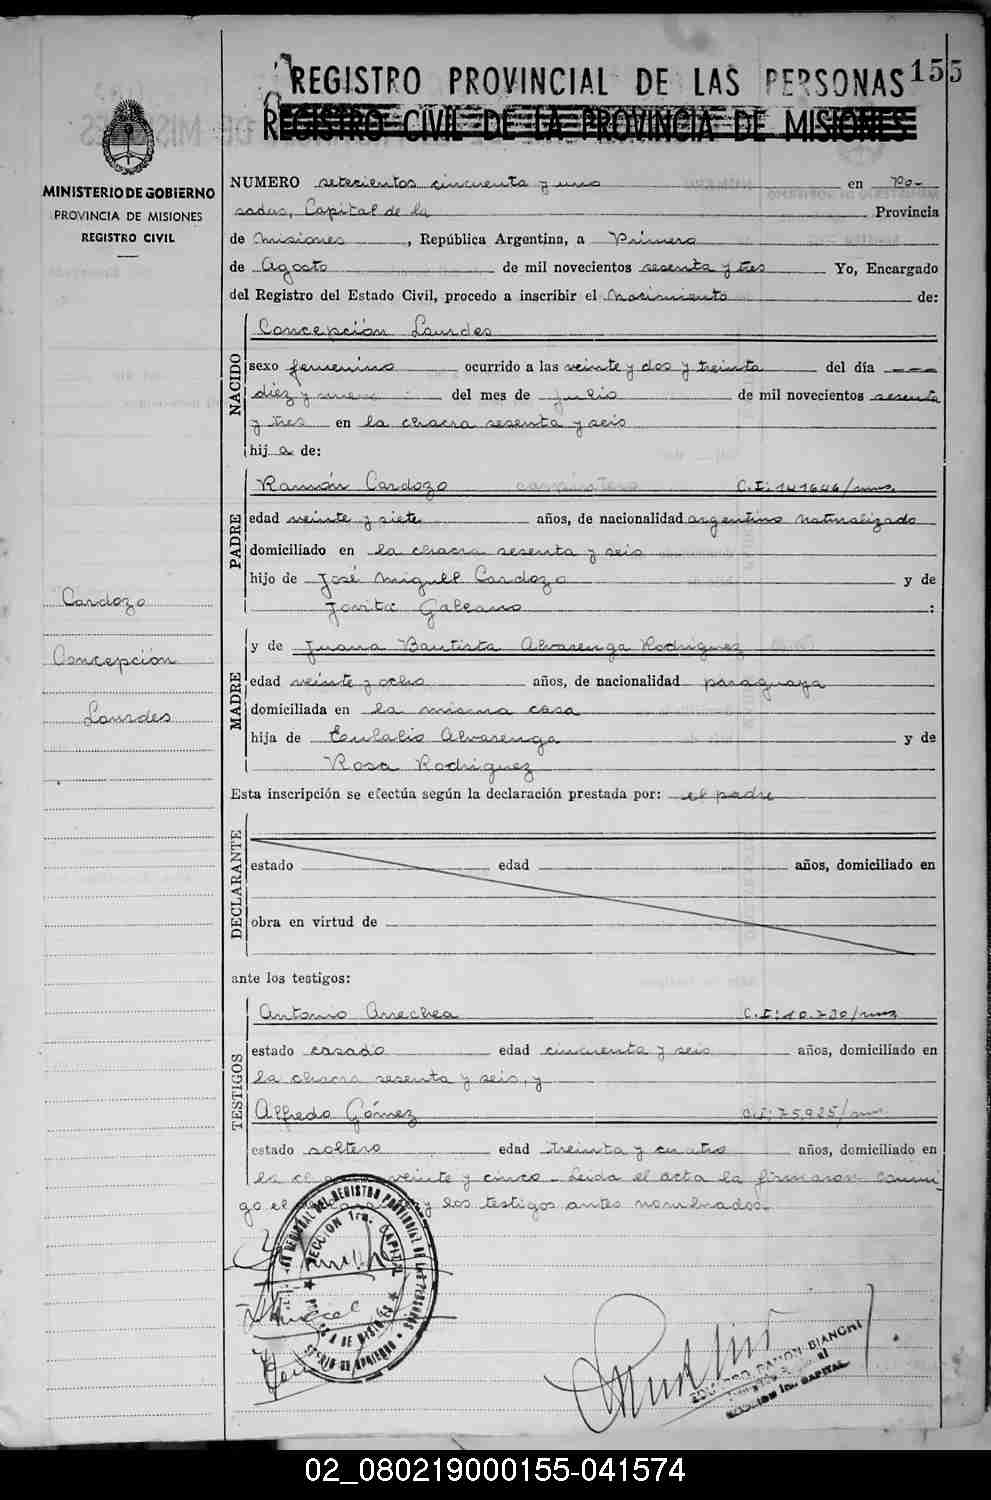 155
REGISTRO PROVINCIAL DE LAS PERSONAS
REGISTRO CIVIL DE LA PROVINCIA DE MISIONES
MINISTERIO DE GOBIERNO
PROVINCIA DE MISIONES
REGISTRO CIVIL
NUMERO setecientos cincuenta y uno en Po-
sadas, Capital de la Provincia
de Misiones, República Argentina, a Primero
de Agosto de mil novecientos sesenta y tres Yo, Encargado
del Registro del Estado Civil, procedo a inscribir el Nacimiento de:
NACIDO
Concepción Lourdes
sexo femenino ocurrido a las veinte y dos y treinta del día ---
diez y nueve del mes de Julio de mil novecientos sesenta
y tres en la chacra sesenta y seis
hija de:
PADRE
Ramón Cardozo carpintero C.I: 141646/mns.
edad veinte y siete años, de nacionalidad argentino naturalizado
domiciliado en la chacra sesenta y seis
hijo de José Miguel Cardozo y de
Jovita Galeano :
MADRE
y de Juana Bautista Alvarenga Rodriguez
edad veinte y ocho años, de nacionalidad paraguaya
domiciliada en la misma casa
hija de Eulalio Alvarenga y de
Rosa Rodriguez
Esta inscripción se efectúa según la declaración prestada por: el padre
DECLARANTE
estado edad años, domiciliado en
obra en virtud de
ante los testigos:
TESTIGOS
Antonio Arrechea C.I: 10.730/mns
estado casado edad cincuenta y seis años, domiciliado en
la chacra sesenta y seis, y
Alfredo Gómez C.I: 75.925/mns
estado soltero edad treinta y cuatro años, domiciliado en
la veinte y cinco - Leida el acta la firmaron conmi-
go el y los testigos antes nombrados.-
Cardozo
Concepción
Lourdes
REGISTRO PROVINCIAL DE LAS PERSONAS
SECCION 1ra. CAPITAL
EDUARDO RAMON BIANCHI
SECCION 1ra. CAPITAL
02_080219000155-041574